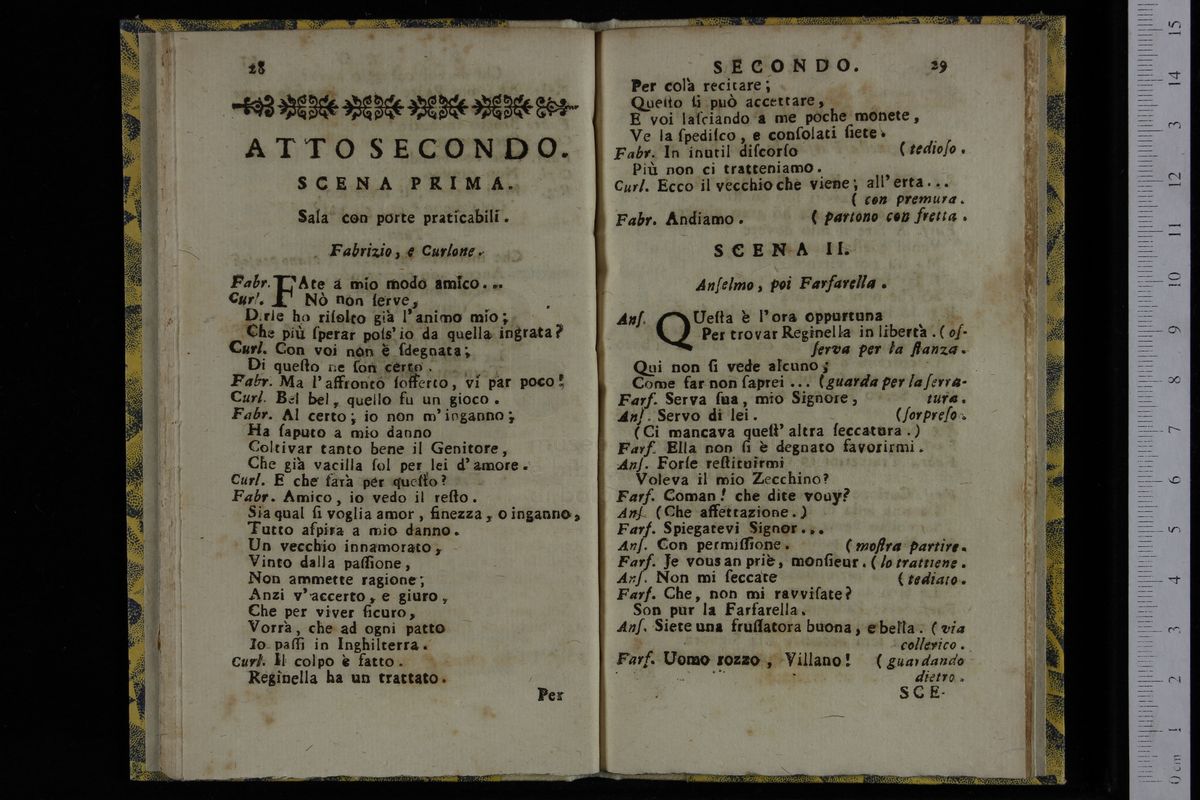 28
ATTO SECONDO.
SCENA PRIMA.
Sala con porte praticabili.
Fabrizio, e Curlone.
Fabr. FAte a mio modo amico...
Curl. Nò non ſerve,
Dirle ho riſolto già l'animo mio;
Che più ſperar poſs'io da quella ingrata?
Curl. Con voi non è ſdegnata;
Di queſto ne ſon certo.
Fabr. Ma l'affronto ſofferto, vi par poco?
Curl. Bel bel, quello fu un gioco.
Fabr. Al certo; io non m'inganno;
Ha ſaputo a mio danno
Coltivar tanto bene il Genitore,
Che già vacilla ſol per lei d'amore.
Curl. E che ſarà per queſto?
Fabr. Amico, io vedo il reſto.
Sia qual ſi voglia amor, finezza, o inganno,
Tutto aſpira a mio danno.
Un vecchio innamorato,
Vinto dalla paſſione,
Non ammette ragione;
Anzi v'accerto, e giuro,
Che per viver ſicuro,
Vorrà, che ad ogni patto
Io paſſi in Inghilterra.
Curl. Il colpo è fatto.
Reginella ha un trattato.
Per
SECONDO. 29
Per colà recitare;
Queſto ſi può accettare,
E voi laſciando a me poche monete,
Ve la ſpediſco, e conſolati ſiete.
Fabr. In inutil diſcorſo (tedioſo.
Più non ci tratteniamo.
Curl. Ecco il vecchio che viene; all'erta...
( con premura.
Fabr. Andiamo. ( partono con fretta.
SCENA II.
Anſelmo, poi Farfarella.
Anſ. QUeſta è l'ora oppurtuna
Per trovar Reginella in libertà. (oſ-
ſerva per la ſtanza.
Qui non ſi vede alcuno;
Come far non ſaprei... (guarda per la ſerra-
Farf. Serva ſua, mio Signore, tura.
Anſ. Servo di lei. (ſorpreſo.
(Ci mancava queſt'altra ſeccatura.)
Farf. Ella non ſi è degnato favorirmi.
Anſ. Forſe reſtituirmi
Voleva il mio Zecchino?
Farf. Coman! che dite vouy?
Anſ. (Che affettazione.)
Farf. Spiegatevi Signor...
Anſ. Con permiſſione. (moſtra partire.
Farf. Je vous an priè, monſieur. (lo trattiene.
Anſ. Non mi ſeccate (tediato.
Farf. Che, non mi ravviſate?
Son pur la Farfarella.
Anſ. Siete una fruſſatora buona, e bella. (via
collerico.
Farf. Uomo rozzo, Villano! (guardando
dietro.
SCE-
0 cm 1 2 3 4 5 6 7 8 9 10 11 12 13 14 15